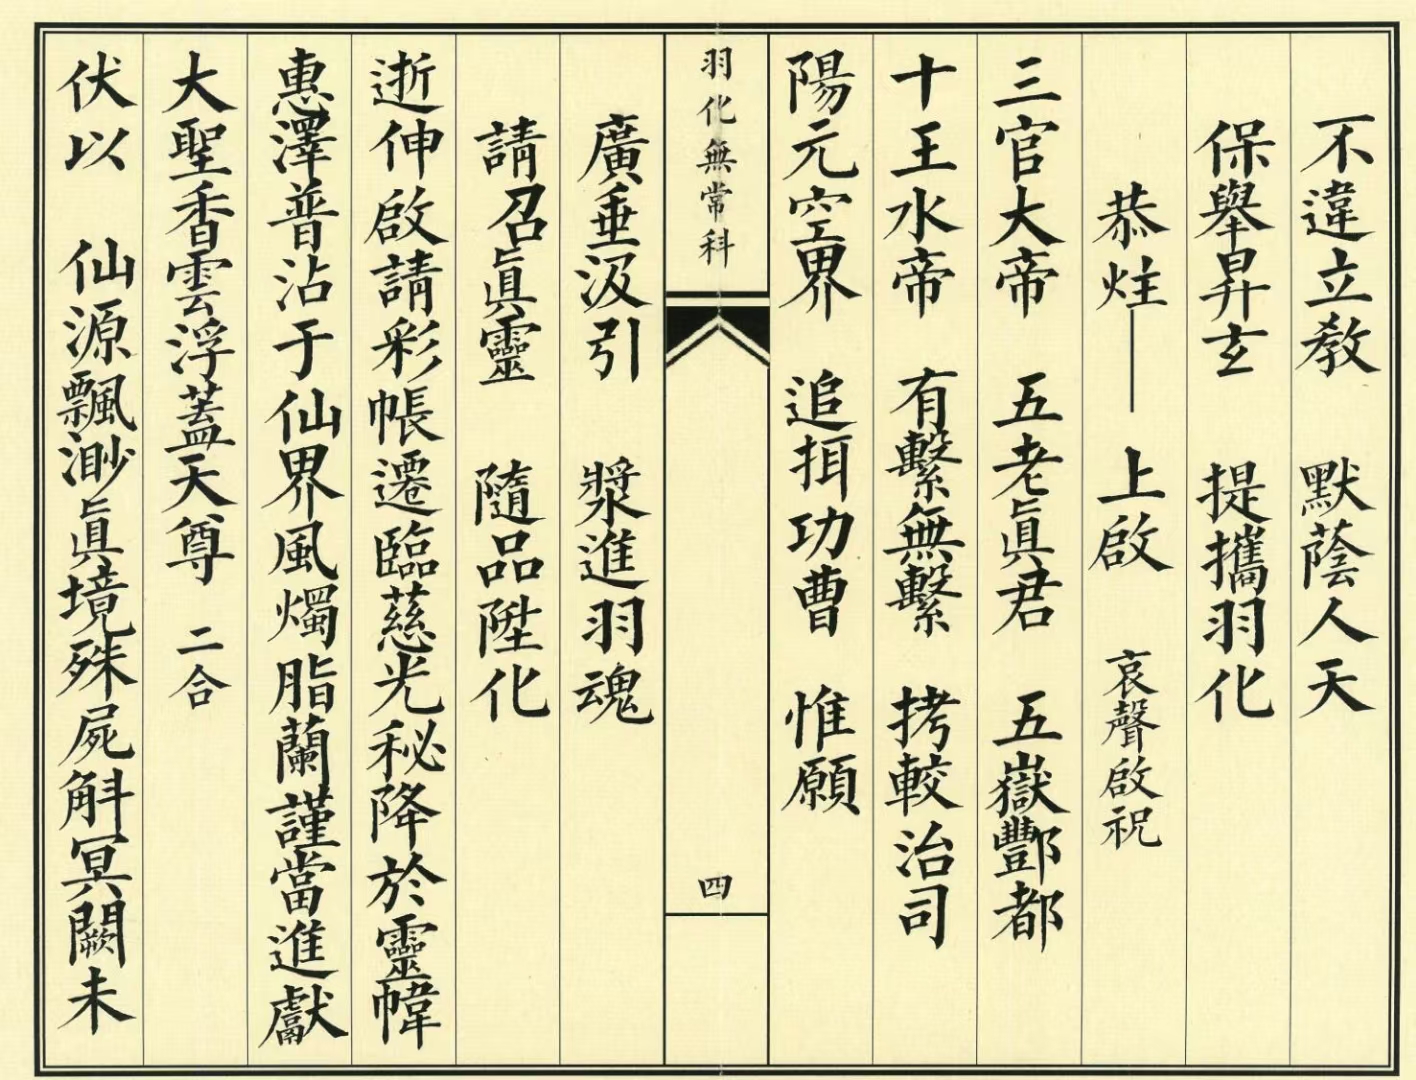 不違立教　默蔭人天
保舉昇玄　提攜羽化
恭炷──　上啟　哀聲啟祝
三官大帝　五老眞君　五嶽酆都
十王水帝　有繫無繫　拷較治司
陽元空界　追挕功曹　惟願
羽化無常科
四
廣垂汲引　漿進羽魂
請召眞靈　隨品陞化
逝伸啟請彩帳遷臨慈光秘降於靈幃
惠澤普沾于仙界風燭脂蘭謹當進獻
大聖香雲浮蓋天尊　二合
伏以　仙源飄渺眞境殊屍斛冥闕未